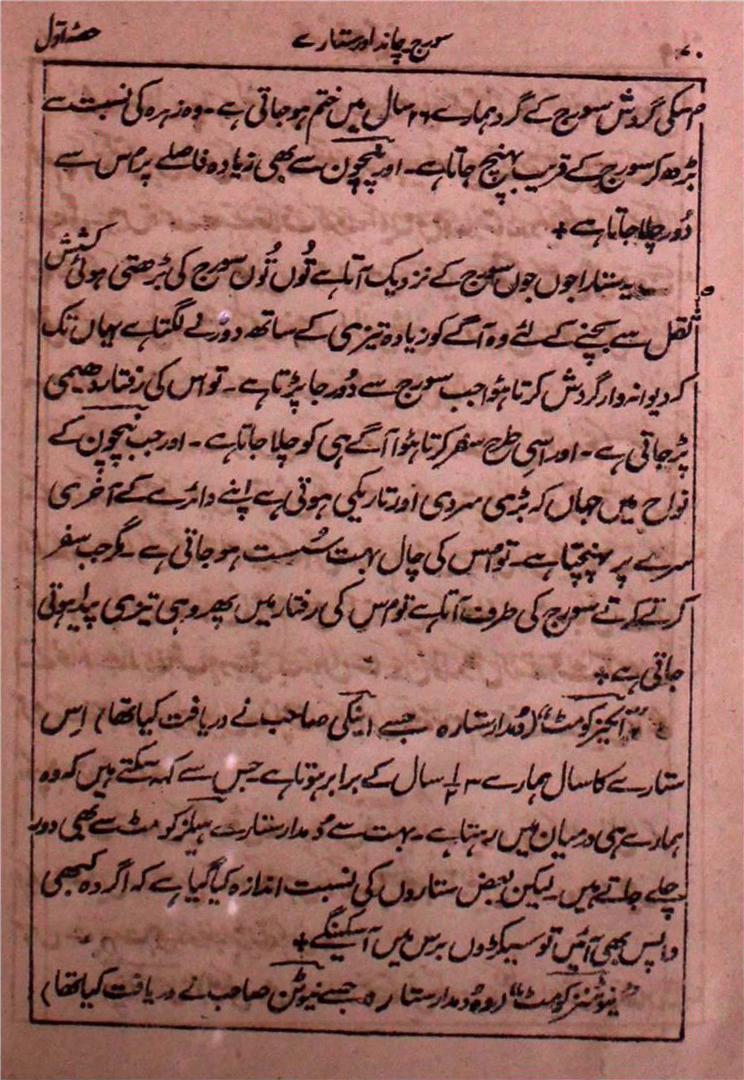 ۷۰ سورج چاند اور ستارے حصہ اوّل
اسکی گردش سورج کے گرد ہمارے ۷۶ سال میں ختم ہو جاتی ہے ۔ وہ زہرہ کی نسبت سے
بڑھ کر سورج کے قریب پہنچ جاتا ہے ۔ اور نپچون سے بھی زیادہ فاصلے پر اس سے
دُور چلا جاتا ہے +
یہ ستارا جوں جوں سورج کے نزدیک آتا ہے تُوں تُوں سورج کی بڑھتی ہوئی کشش
ثقل سے بچنے کے لئے وہ آگے کو زیادہ تیزی کے ساتھ دوڑنے لگتا ہے یہاں تک
کہ دیوانہ وار گردش کرتا ہوا جب سورج سے دُور جا پڑتا ہے ۔ تو اس کی رفتار دھیمی
پڑ جاتی ہے ۔ اور اسی طرح سفر کرتا ہوا آگے ہی کو چلا جاتا ہے ۔ اور جب نپچون کے
نواح میں جہاں کہ بڑی سردی اور تاریکی ہوتی ہے اپنے دائرے کے آخری
سرے پر پہنچتا ہے ۔ تو اس کی چال بہت سُست ہو جاتی ہے ۔ مگر جب سفر
کرتے کرتے سورج کی طرف آتا ہے تو اس کی رفتار میں پھر وہی تیزی پیدا ہوتی
جاتی ہے +
(دُمدار ستارہ جسے اینکی صاحب نے دریافت کیا تھا) اِس
ستارے کا سال ہمارے سال کے برابر ہوتا ہے جس سے کہہ سکتے ہیں کہ وہ
ہمارے ہی درمیان میں رہتا ہے ۔ بہت سے دُمدار ستارے ہیلز کومٹ سے بھی دور
چلے جاتے ہیں ۔ لیکن بعض ستاروں کی نسبت اندازہ کیا گیا ہے کہ اگر وہ کبھی
واپس بھی آئیں تو سیکڑوں برس میں آسکینگے +
”نیوٹنز کومٹ“ (وہ دُمدار ستارہ جسے نیوٹن صاحب نے دریافت کیا تھا)